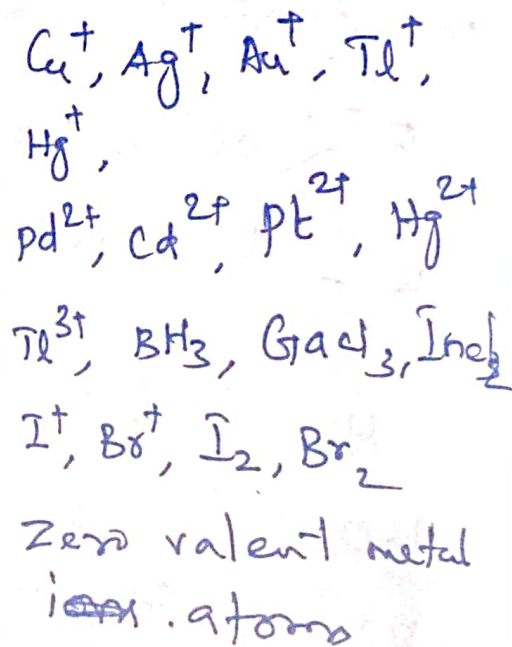 Cu⁺, Ag⁺, Au⁺, Tl⁺,
Hg⁺,
Pd²⁺, Cd²⁺, Pt²⁺, Hg²⁺
Tl³⁺, BH₃, GaCl₃,
I⁺, Br⁺, I₂, Br₂
Zero valent metal
atoms